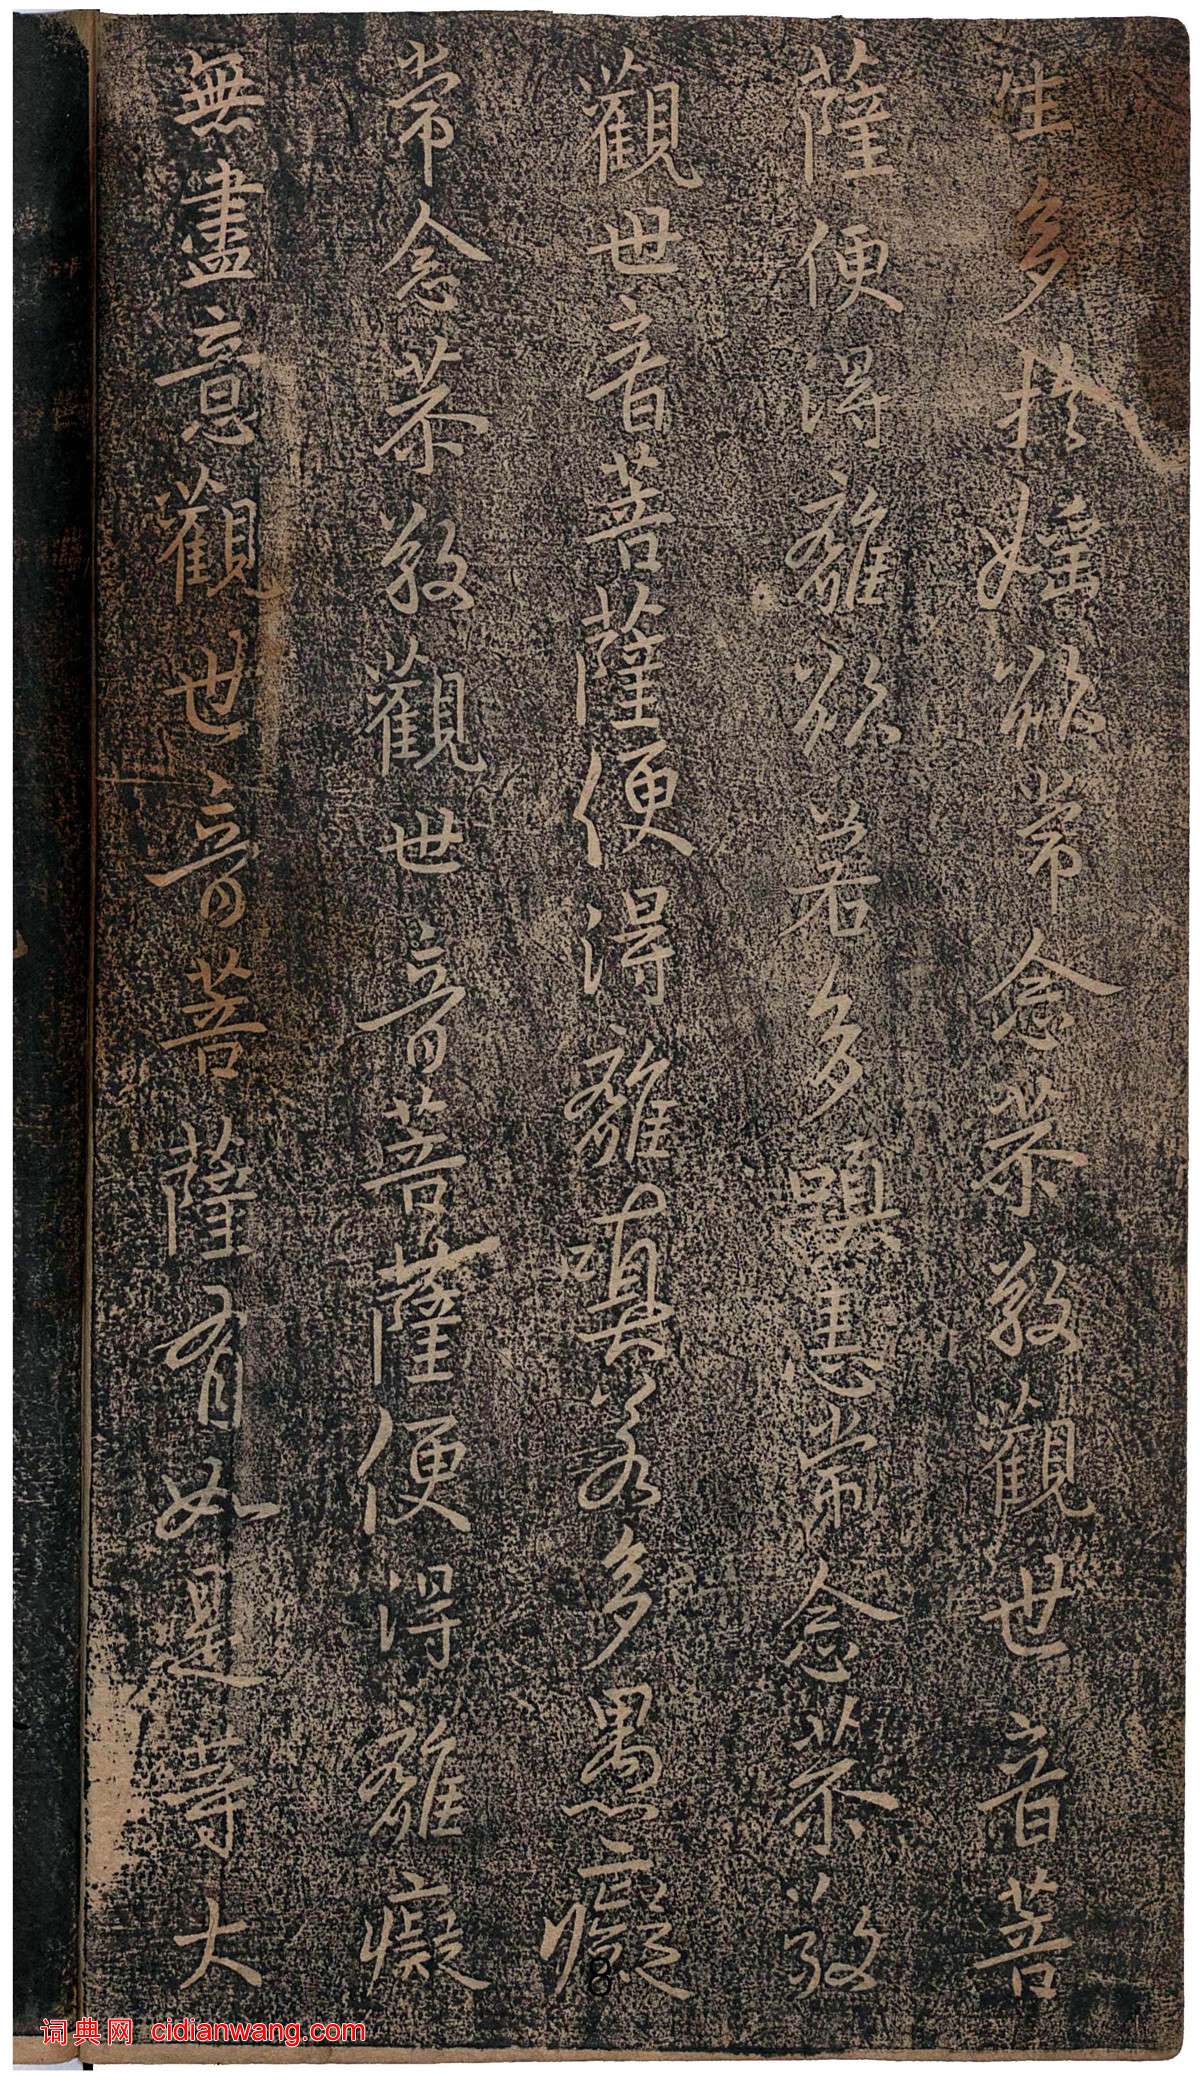 生多於婬欲常念恭敬觀世音菩
薩便得離欲若多瞋恚常念恭敬
觀世音菩薩便得離瞋若多愚癡
常念恭敬觀世音菩薩便得離癡
無盡意觀世音菩薩有如是等大
8
词典网 cidianwang.com